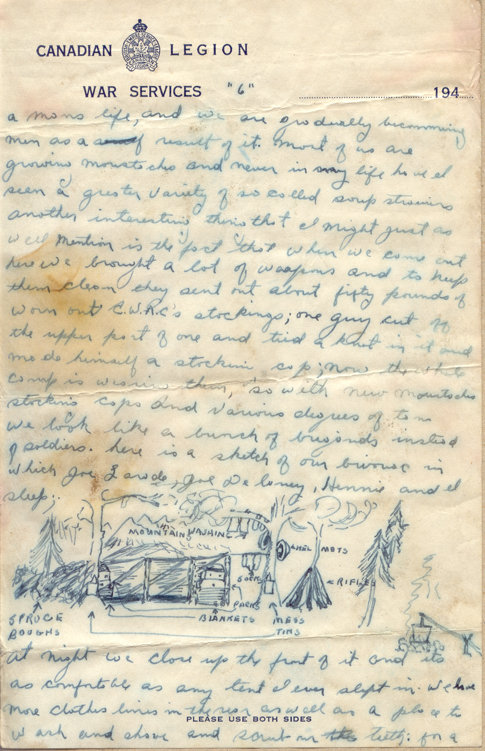 CANADIAN LEGION
WAR SERVICES "6" 194
a mans life, and we are gradually becomming
men as a result of it. most of us are
growing moustachs and never in my life have I
seen a greater variety of so called soup strainers
another interesting thing that I might just as
well mention is the fact that when we come out
here we brought a lot of weapons and to keep
them clean they sent out about fifty pounds of
worn out C.W.A.C's stockings; one guy cut off
the upper part of one and tied a knot in it and
made himself a stocking cap; now the whole
camp is wearing them, so with new moustachs
stocking caps and various degrees of tan
we look like a bunch of brigands instead
of soldiers. here is a sketch of our bivouac in
which Joe Lawde, Joe Delaney, Hennie and I
sleep;
MOUNTAINS WASHING
SOCKS
STEEL HATS
RIFLES
PACKS
SPRUCE
BOUGHS
BLANKETS
MESS
TINS
at night we close up the front of it and its
as comfortable as any tent I ever slept in. We have
more clothes lines in the rear as well as a place to
PLEASE USE BOTH SIDES
wash and shave and scrub in the teeth; for a